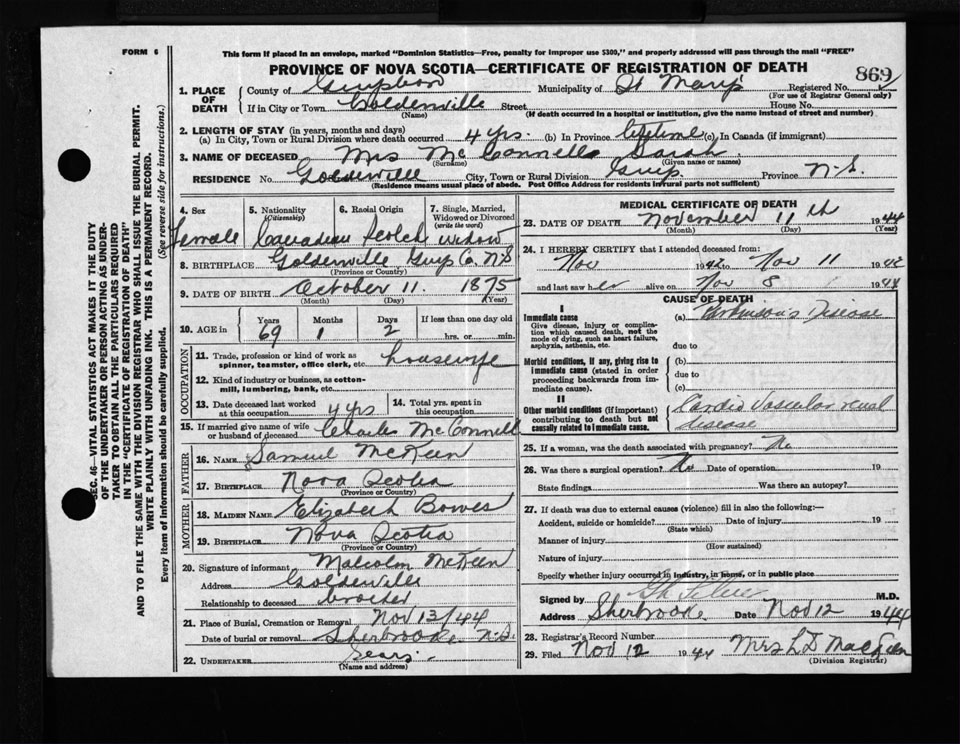 FORM 6
This form if placed in an envelope, marked "Dominion Statistics—Free, penalty for improper use $300," and properly addressed will pass through the mail "FREE"
PROVINCE OF NOVA SCOTIA—CERTIFICATE OF REGISTRATION OF DEATH
869
1. PLACE OF DEATH
County of Guysboro Municipality of St Mary's Registered No.
(For use of Registrar General only)
If in City or Town Goldenville Street House No.
(Name) (If death occurred in a hospital or institution, give the name instead of street and number)
2. LENGTH OF STAY (in years, months and days)
(a) In City, Town or Rural Division where death occurred 4 yrs. (b) In Province lifetime (c) In Canada (if immigrant)
3. NAME OF DECEASED Mrs McConnell Sarah
(Surname) (Given name or names)
RESIDENCE No. Goldenville City, Town or Rural Division Guys. Province N.S.
(Residence means usual place of abode. Post Office Address for residents in rural parts not sufficient)
4. Sex Female
5. Nationality (Citizenship) Canadian
6. Racial Origin Scotch
7. Single, Married, Widowed or Divorced (write the word) widow
8. BIRTHPLACE Goldenville Guys Co. N.S
(Province or Country)
9. DATE OF BIRTH October 11. 1875
(Month) (Day) (Year)
10. AGE in Years Months Days If less than one day old
69 1 2 hrs. or min.
OCCUPATION
11. Trade, profession or kind of work as spinner, teamster, office clerk, etc. housewife
12. Kind of industry or business, as cotton-mill, lumbering, bank, etc.
13. Date deceased last worked at this occupation 4 yrs
14. Total yrs. spent in this occupation
15. If married give name of wife or husband of deceased Charles McConnell
FATHER
16. NAME Samuel McKeen
17. BIRTHPLACE Nova Scotia
(Province or Country)
MOTHER
18. MAIDEN NAME Elizabeth Bowes
19. BIRTHPLACE Nova Scotia
(Province or Country)
20. Signature of informant Malcolm McKeen
Address Goldenville
Relationship to deceased brother
21. Place of Burial, Cremation or Removal Nov 13/44
Date of burial or removal Sherbrooke N.S.
22. UNDERTAKER Sears
(Name and address)
MEDICAL CERTIFICATE OF DEATH
23. DATE OF DEATH November 11th 1944
(Month) (Day) (Year)
24. I HEREBY CERTIFY that I attended deceased from:
Nov 1942 to Nov 11 1942
and last saw her alive on Nov 8 1944
CAUSE OF DEATH
I
Immediate cause
Give disease, injury or complication which caused death, not the mode of dying, such as heart failure, asphyxia, asthenia, etc.
(a) Parkinson's Disease
due to
Morbid conditions, if any, giving rise to immediate cause (stated in order proceeding backwards from immediate cause).
(b)
due to
(c)
II
Other morbid conditions (if important) contributing to death but not causally related to immediate cause.
Cardio vascular renal
disease
25. If a woman, was the death associated with pregnancy? No
26. Was there a surgical operation? No Date of operation 19
State findings Was there an autopsy?
27. If death was due to external causes (violence) fill in also the following:—
Accident, suicide or homicide? Date of injury 19
(State which)
Manner of injury
(How sustained)
Nature of injury
Specify whether injury occurred in industry, in home, or in public place
Signed by M.D.
Address Sherbrooke Date Nov 12 1944
28. Registrar's Record Number
29. Filed Nov 12 1944 Mrs L D
(Division Registrar)
SEC. 46—VITAL STATISTICS ACT MAKES IT THE DUTY
OF THE UNDERTAKER OR PERSON ACTING AS UNDER-
TAKER TO OBTAIN ALL THE PARTICULARS REQUIRED
IN THE "CERTIFICATE OF REGISTRATION OF DEATH"
AND TO FILE THE SAME WITH THE DIVISION REGISTRAR WHO SHALL ISSUE THE BURIAL PERMIT.
WRITE PLAINLY WITH UNFADING INK. THIS IS A PERMANENT RECORD.
Every item of information should be carefully supplied. (See reverse side for instructions.)